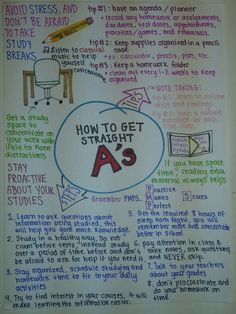 AVOID STRESS, AND
DON'T BE AFRAID
TO TAKE
STUDY
BREAKS
tip #1: have an agenda / planner
• record any homework or assignments,
due dates, test dates, appointments,
practices / games, and rehearsals.
tip #2: Keep supplies organized in a pencil
case.
• ex.: calculator, pencils, pens, etc.
tip #3: Keep a homework folder
• clean out every 1-2 weeks to keep
organized.
listen to classical
music to help
yourself
concentrate
NOTE TAKING:
Tip #1: learn to outline
notes and readings
Get a study
space to
concentrate on
your work
with little to no
distractions
HOW TO GET
STRAIGHT
A's
If you have spare
time, reading
material always helps
STAY
PROACTIVE
ABOUT YOUR
STUDIES
Remember PMPS..
Practice
Makes
Perfect
Scores
1. Learn to ask questions about
information being studied, this
will help you gain more knowledge.
2. Study in a healthy way. Do not
cram before tests, instead study
over a period of time before and don't
be afraid to ask for help if you need it
3. Stay organized, schedule studying and
homework time to fit in your daily
activities
4. Try to find interest in your courses, it will
make learning the information easier.
5. Get the required 8 hours of
sleep each night, you will
remember more and concentrate
better in school
6. pay attention in class &
take notes, ask questions
and NEVER skip.
7. Talk to your teachers
about your grades
8. don't procrastinate and do
your homework on
time